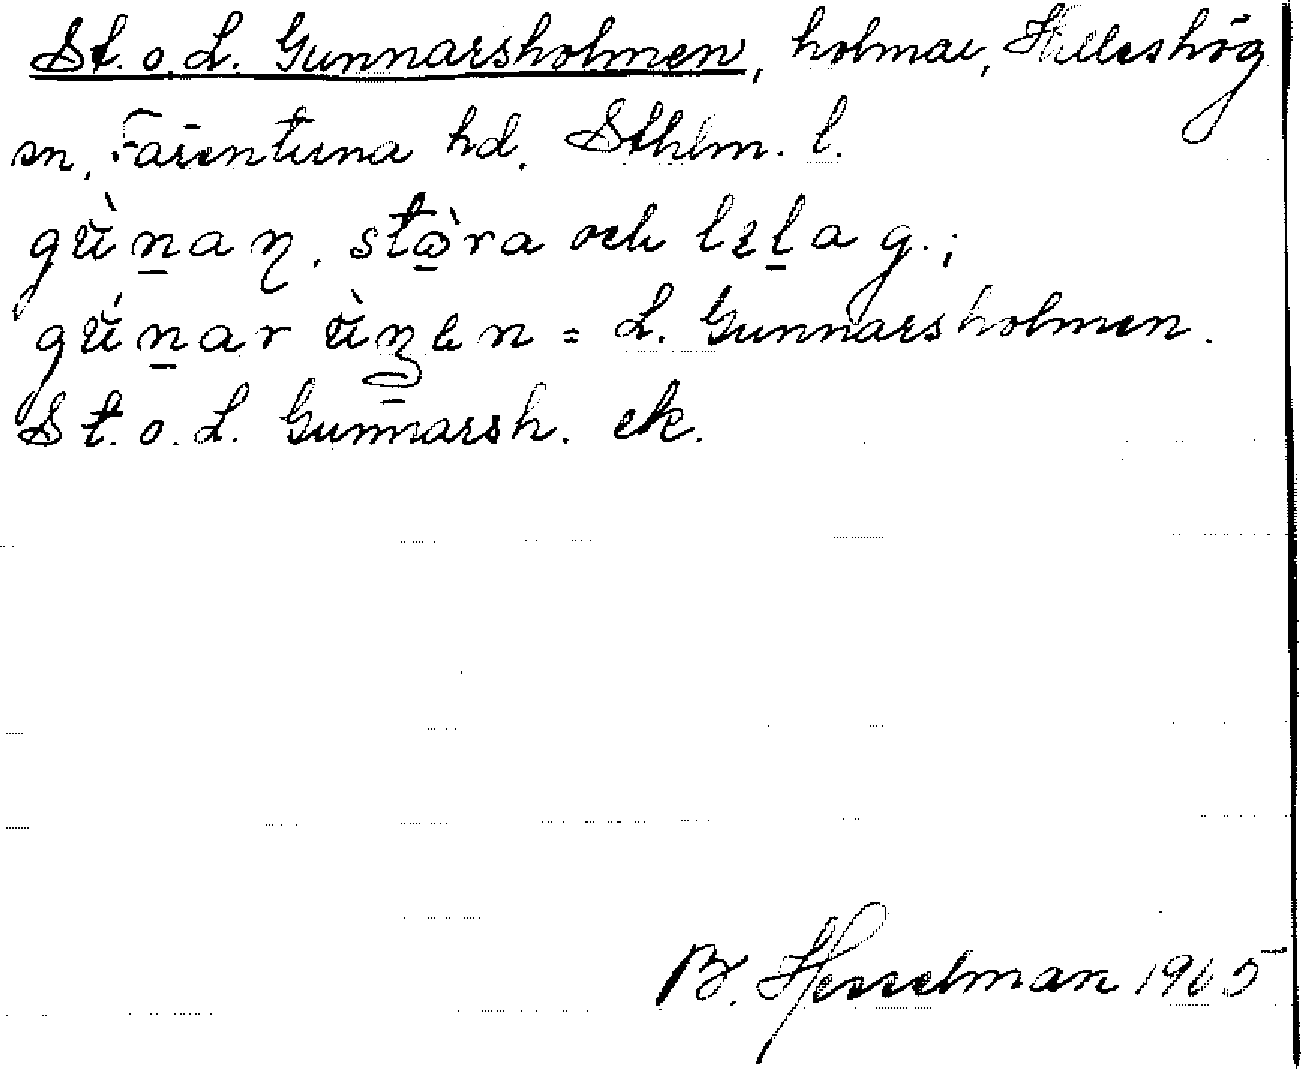 St. o. L. Gunnarsholmen, holmar, Hilleshög
sn, Färentuna hd. Sthlm. l.
gù̈nan, stòra och lıla g.;
gǘnar ù̈ŋen = L. Gunnarsholmen.
St. o. L. Gunnarsh. ek.
B. Hesselman 1905